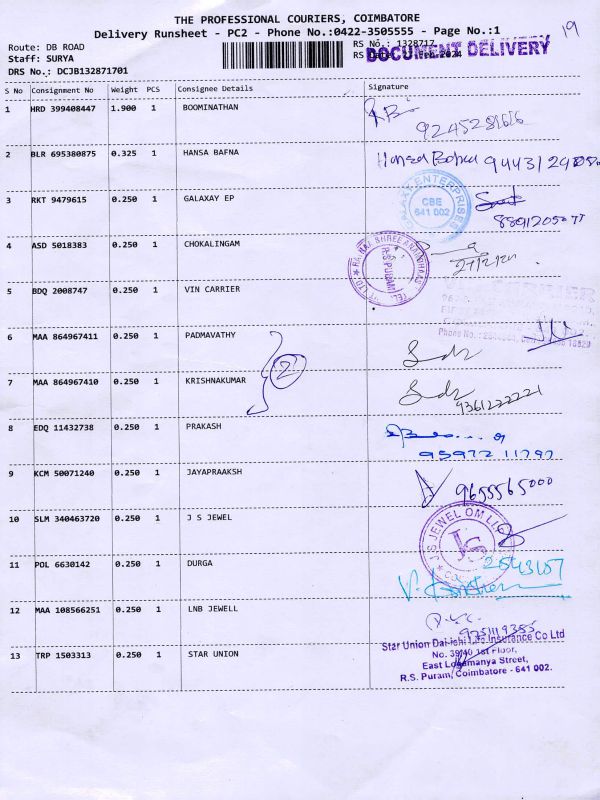 THE PROFESSIONAL COURIERS, COIMBATORE
Delivery Runsheet - PC2 - Phone No.:0422-3505555 - Page No.:1
19
Route: DB ROAD
RS No.: 1328717
Staff: SURYA
DOCUMENT DELIVERY
DRS No.: DCJB132871701
S No Consignment No Weight PCS Consignee Details Signature
1 HRD 399408447 1.900 1 BOOMINATHAN
2 BLR 695380875 0.325 1 HANSA BAFNA Hansa Bafna
3 RKT 9479615 0.250 1 GALAXAY EP
GALAXY ENTERPRISES
CBE
641 002
4 ASD 5018383 0.250 1 CHOKALINGAM
R.S PURAM
5 BDQ 2008747 0.250 1 VIN CARRIER
6 MAA 864967411 0.250 1 PADMAVATHY
2
7 MAA 864967410 0.250 1 KRISHNAKUMAR
9361222221
8 EDQ 11432738 0.250 1 PRAKASH
9597211797
9 KCM 50071240 0.250 1 JAYAPRAAKSH
9655565000
10 SLM 340463720 0.250 1 J S JEWEL
11 POL 6630142 0.250 1 DURGA
2543107
12 MAA 108566251 0.250 1 LNB JEWELL
9751119355
Star Union Dai-ichi Life Insurance Co Ltd
No. 39/40 1st Floor,
13 TRP 1503313 0.250 1 STAR UNION
East Logamanya Street,
R.S. Puram, Coimbatore - 641 002.